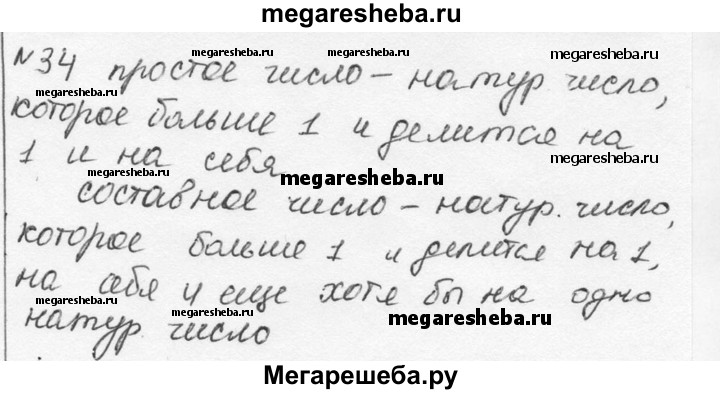 megaresheba.ru
№34 простое число – натур число,
megaresheba.ru megaresheba.ru megaresheba.ru
которое больше 1 и делится на
1 и на себя
megaresheba.ru
megaresheba.ru
составное число – натур. число,
которое больше 1 и делится на 1,
на себя и еще хотя бы на одно
megaresheba.ru megaresheba.ru
натур. число
megaresheba.ru megaresheba.ru
Мегарешеба.ру